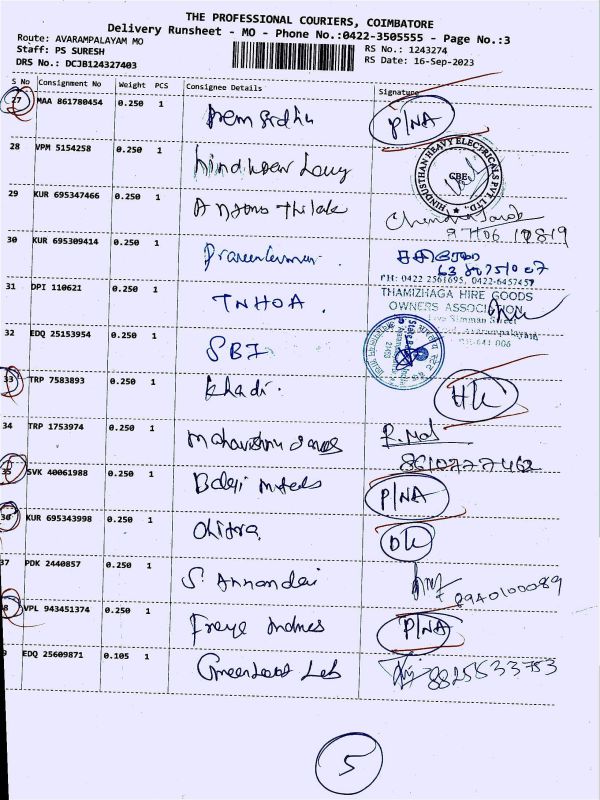 THE PROFESSIONAL COURIERS, COIMBATORE
Delivery Runsheet - MO - Phone No.:0422-3505555 - Page No.:3
Route: AVARAMPALAYAM MO
RS No.: 1243274
Staff: PS SURESH
RS Date: 16-Sep-2023
DRS No.: DCJB124327403
S No Consignment No Weight PCS Consignee Details Signature
27 MAA 861780454 0.250 1 P/NA
28 VPM 5154258 0.250 1
HINDUSTHAN HEAVY ELECTRICALS PVT LTD., CBE
29 KUR 695347466 0.250 1 Thilak
30 KUR 695309414 0.250 1 Praveenkumar.
PH: 0422 2561695, 0422-6457457
31 DPI 110621 0.250 1 TNHOA.
THAMIZHAGA HIRE GOODS
OWNERS ASSOCIATION
32 EDQ 25153954 0.250 1 SBI
33 TRP 7583893 0.250 1 Khadi.
34 TRP 1753974 0.250 1 Mahavishnu
8610777462
35 SVK 40061988 0.250 1 Balaji P/NA
36 KUR 695343998 0.250 1 Chitra DK
37 PDK 2440857 0.250 1 S. Annandai
8940100089
8 VPL 943451374 0.250 1 P/NA
9 EDQ 25609871 0.105 1 Lab 8825533753
5